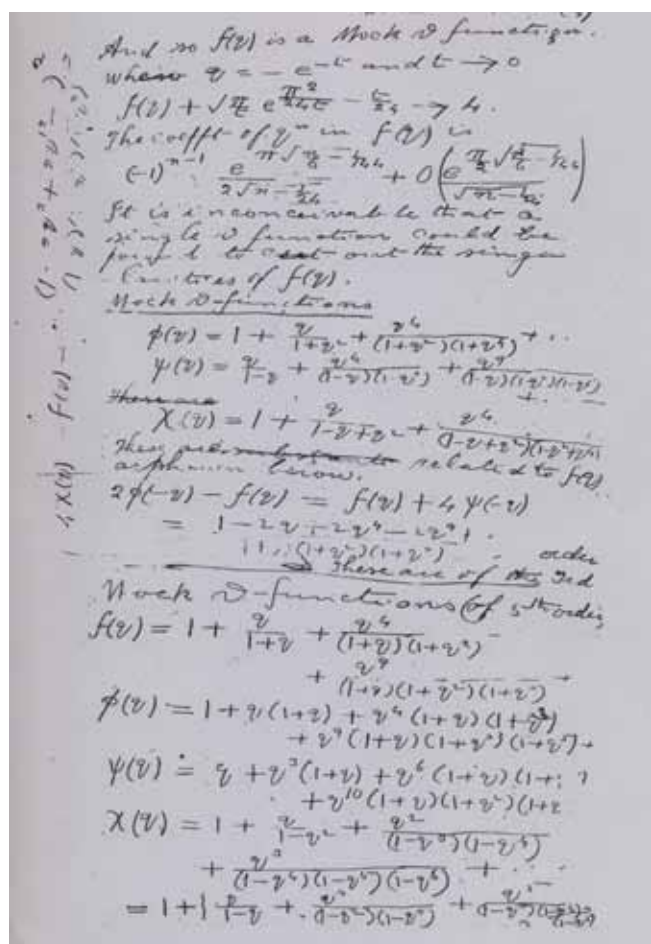 And so f(q) is a Mock ϑ function.
When q = - e^{-t} and t → 0
f(q) + √(π/t) e^{π²/24t - t/24} → 4.
The coefft of q^n in f(q) is
(-1)^{n-1} e^{π√(n/6 - 1/144)} / 2√(n - 1/24) + O(e^{π/2 √(n/6 - 1/144)} / √(n - 1/24))
It is inconceivable that a
single ϑ function could be
found to cut out the singu
larities of f(q).
Mock ϑ-functions
φ(q) = 1 + q/(1+q²) + q⁴/(1+q²)(1+q⁴) + ..
ψ(q) = q/(1-q) + q⁴/(1-q)(1-q³) + q⁹/(1-q)(1-q³)(1-q⁵)
+ ...
There are
χ(q) = 1 + q/(1-q+q²) + q⁴/(1-q+q²)(1-q²+q⁴)
These are related to f(q)
as shown below.
2φ(-q) - f(q) = f(q) + 4ψ(-q)
= 1 - 2q + 2q⁴ - 2q⁹ + .
(1+q²)(1+q³)
These are of the 3rd order
Mock ϑ-functions (of 5th order)
f(q) = 1 + q/(1+q) + q⁴/(1+q)(1+q²)
+ q⁹/(1+q)(1+q²)(1+q³) +
φ(q) = 1 + q(1+q) + q⁴(1+q)(1+q³)
+ q⁹(1+q)(1+q³)(1+q⁵) +
ψ(q) = q + q³(1+q) + q⁶(1+q)(1+
+ q¹⁰(1+q)(1+q²)(1+q
χ(q) = 1 + q/(1-q²) + q²/(1-q³)(1-q⁴)
+ q³/(1-q⁴)(1-q⁵)(1-q⁶) + ..
= 1 + { q/(1-q) + q³/(1-q²)(1-q³) +
4χ(q) - f(q) =